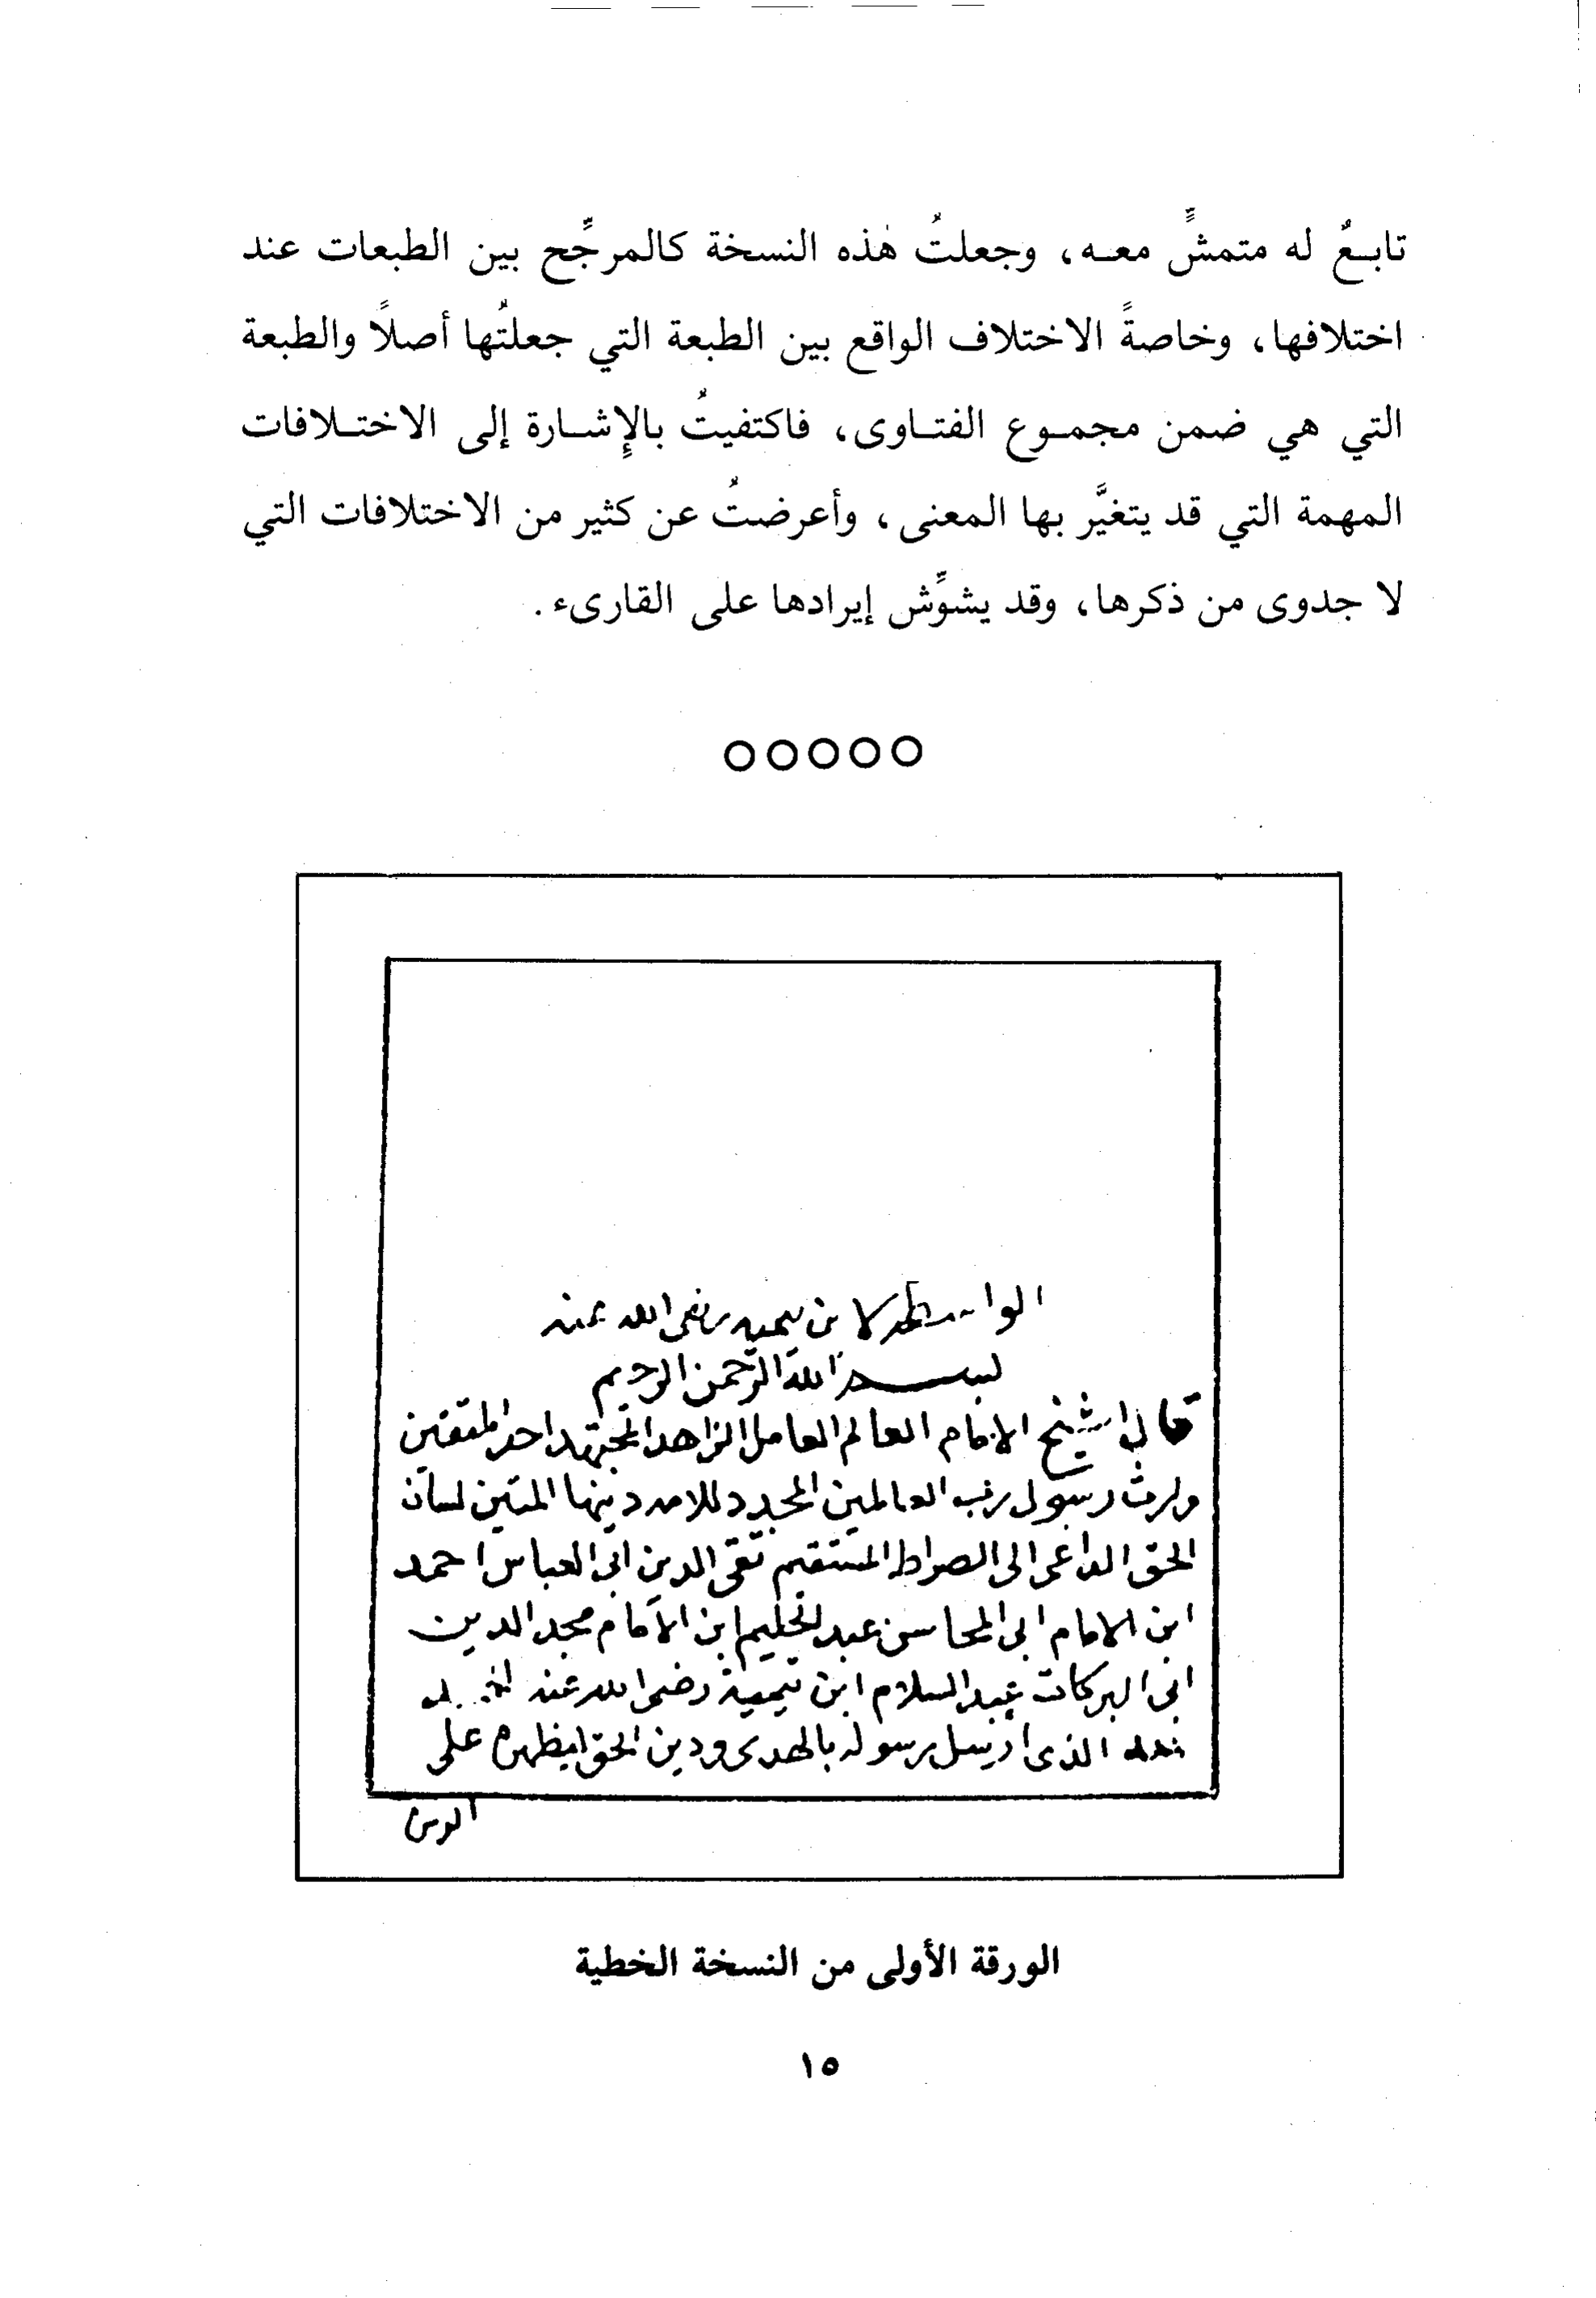 تابـعٌ له متمشٍّ معـه، وجعلتُ هٰذه النسخة كالمرجِّح بين الطبعات عند
اختلافها، وخاصةً الاختلاف الواقع بين الطبعة التي جعلتُها أصلاً والطبعة
التي هي ضمن مجمـوع الفتـاوى، فاكتفيتُ بالإِشـارة إلى الاختـلافات
المهمة التي قد يتغيَّر بها المعنى، وأعرضتُ عن كثير من الاختلافات التي
لا جدوى من ذكرها، وقد يشوِّش إيرادها على القارىء.
○○○○○
الواسطية لابن تيميه رضى الله عنه
بسم الله الرحمن الرحيم
قال الشيخ الامام العالم العامل الزاهد المجتهد احد المتقنين
وارث رسول رب العالمين المجدد للامه دينها المتين لسان
الحق الداعى الى الصراط المستقيم تقى الدين ابى العباس احمد
ابن الامام ابى المحاسن عبد الحليم ابن الامام مجد الدين
ابى البركات عبد السلام ابن تيمية رضى الله عنه
الذى ارسل رسوله بالهدى ودين الحق ليظهره على
الورقة الأولى من النسخة الخطية
١٥